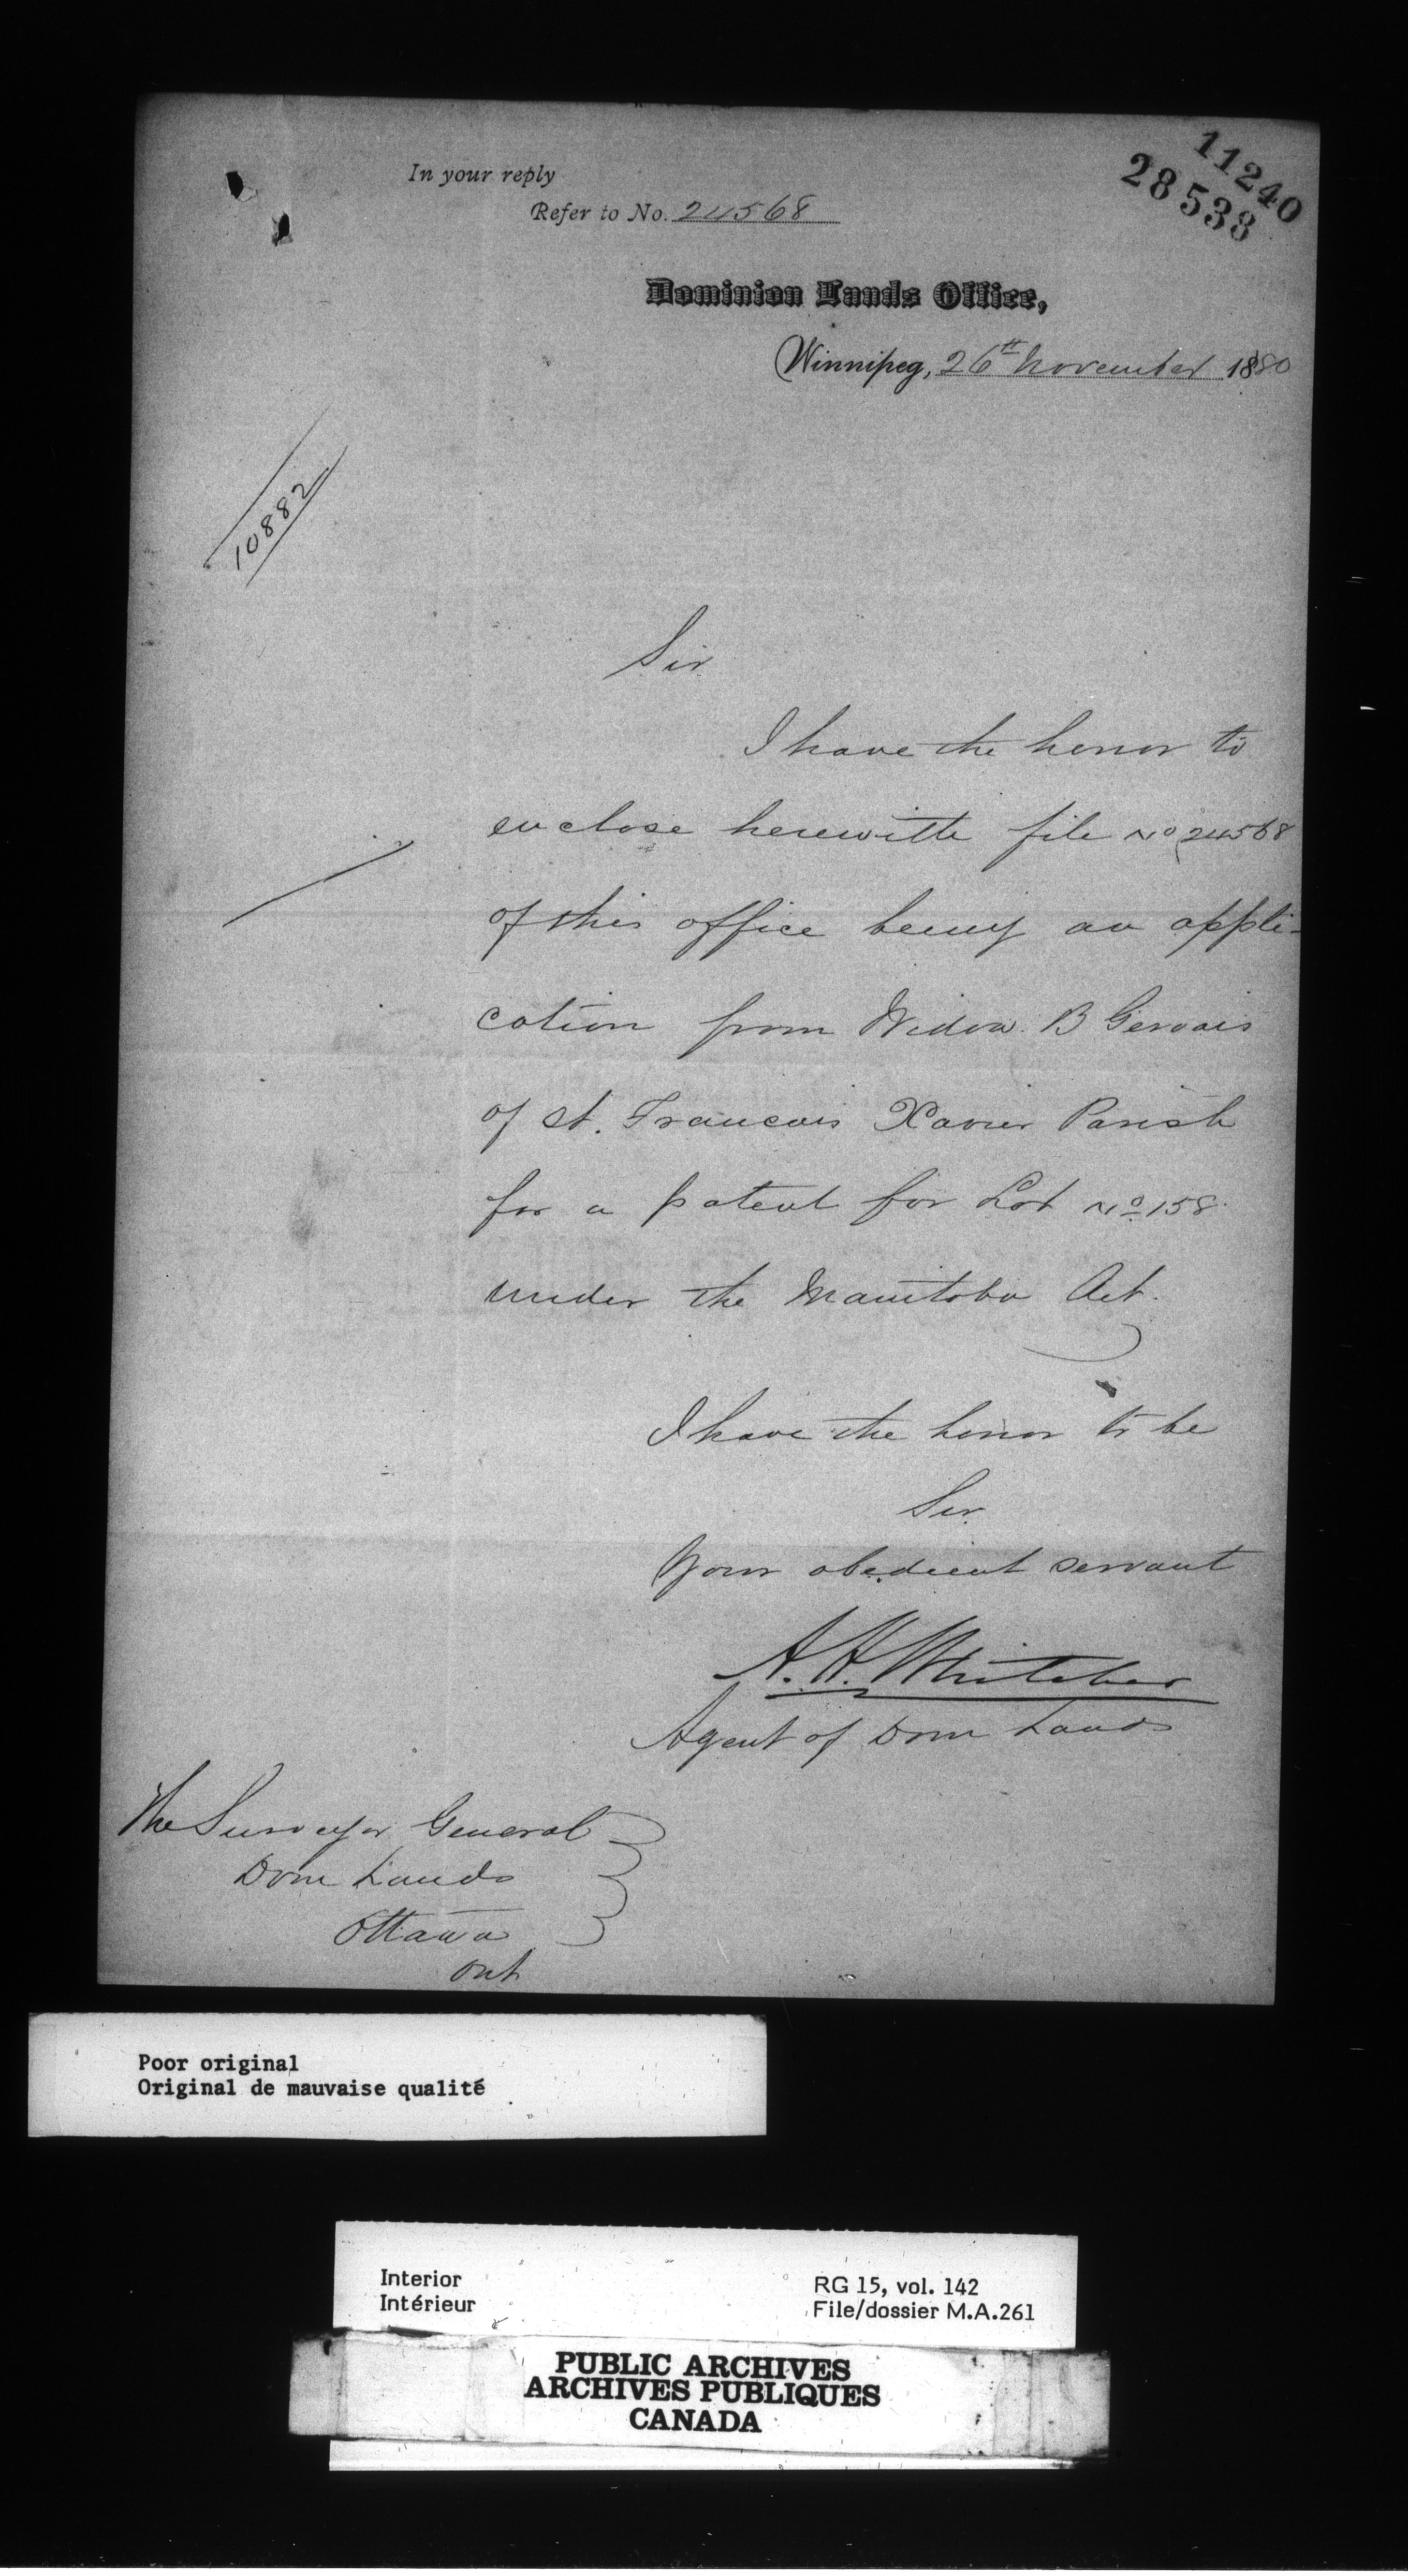 11240
28538
In your reply
Refer to No. 24568
Dominion Lands Office,
Winnipeg, 26th November 1880
10882
Sir
I have the honor to
enclose herewith file No 24568
of this office being an appli-
cation from Widow B Gervais
of St. Francois Xavier Parish
for a patent for Lot No 158
under the Manitoba Act.
I have the honor to be
Sir
Your obedient servant
A. H. Whitcher
Agent of Dom Lands
The Surveyor General
Dom Lands
Ottawa
Ont
Poor original
Original de mauvaise qualité
Interior
Intérieur
RG 15, vol. 142
File/dossier M.A.261
PUBLIC ARCHIVES
ARCHIVES PUBLIQUES
CANADA